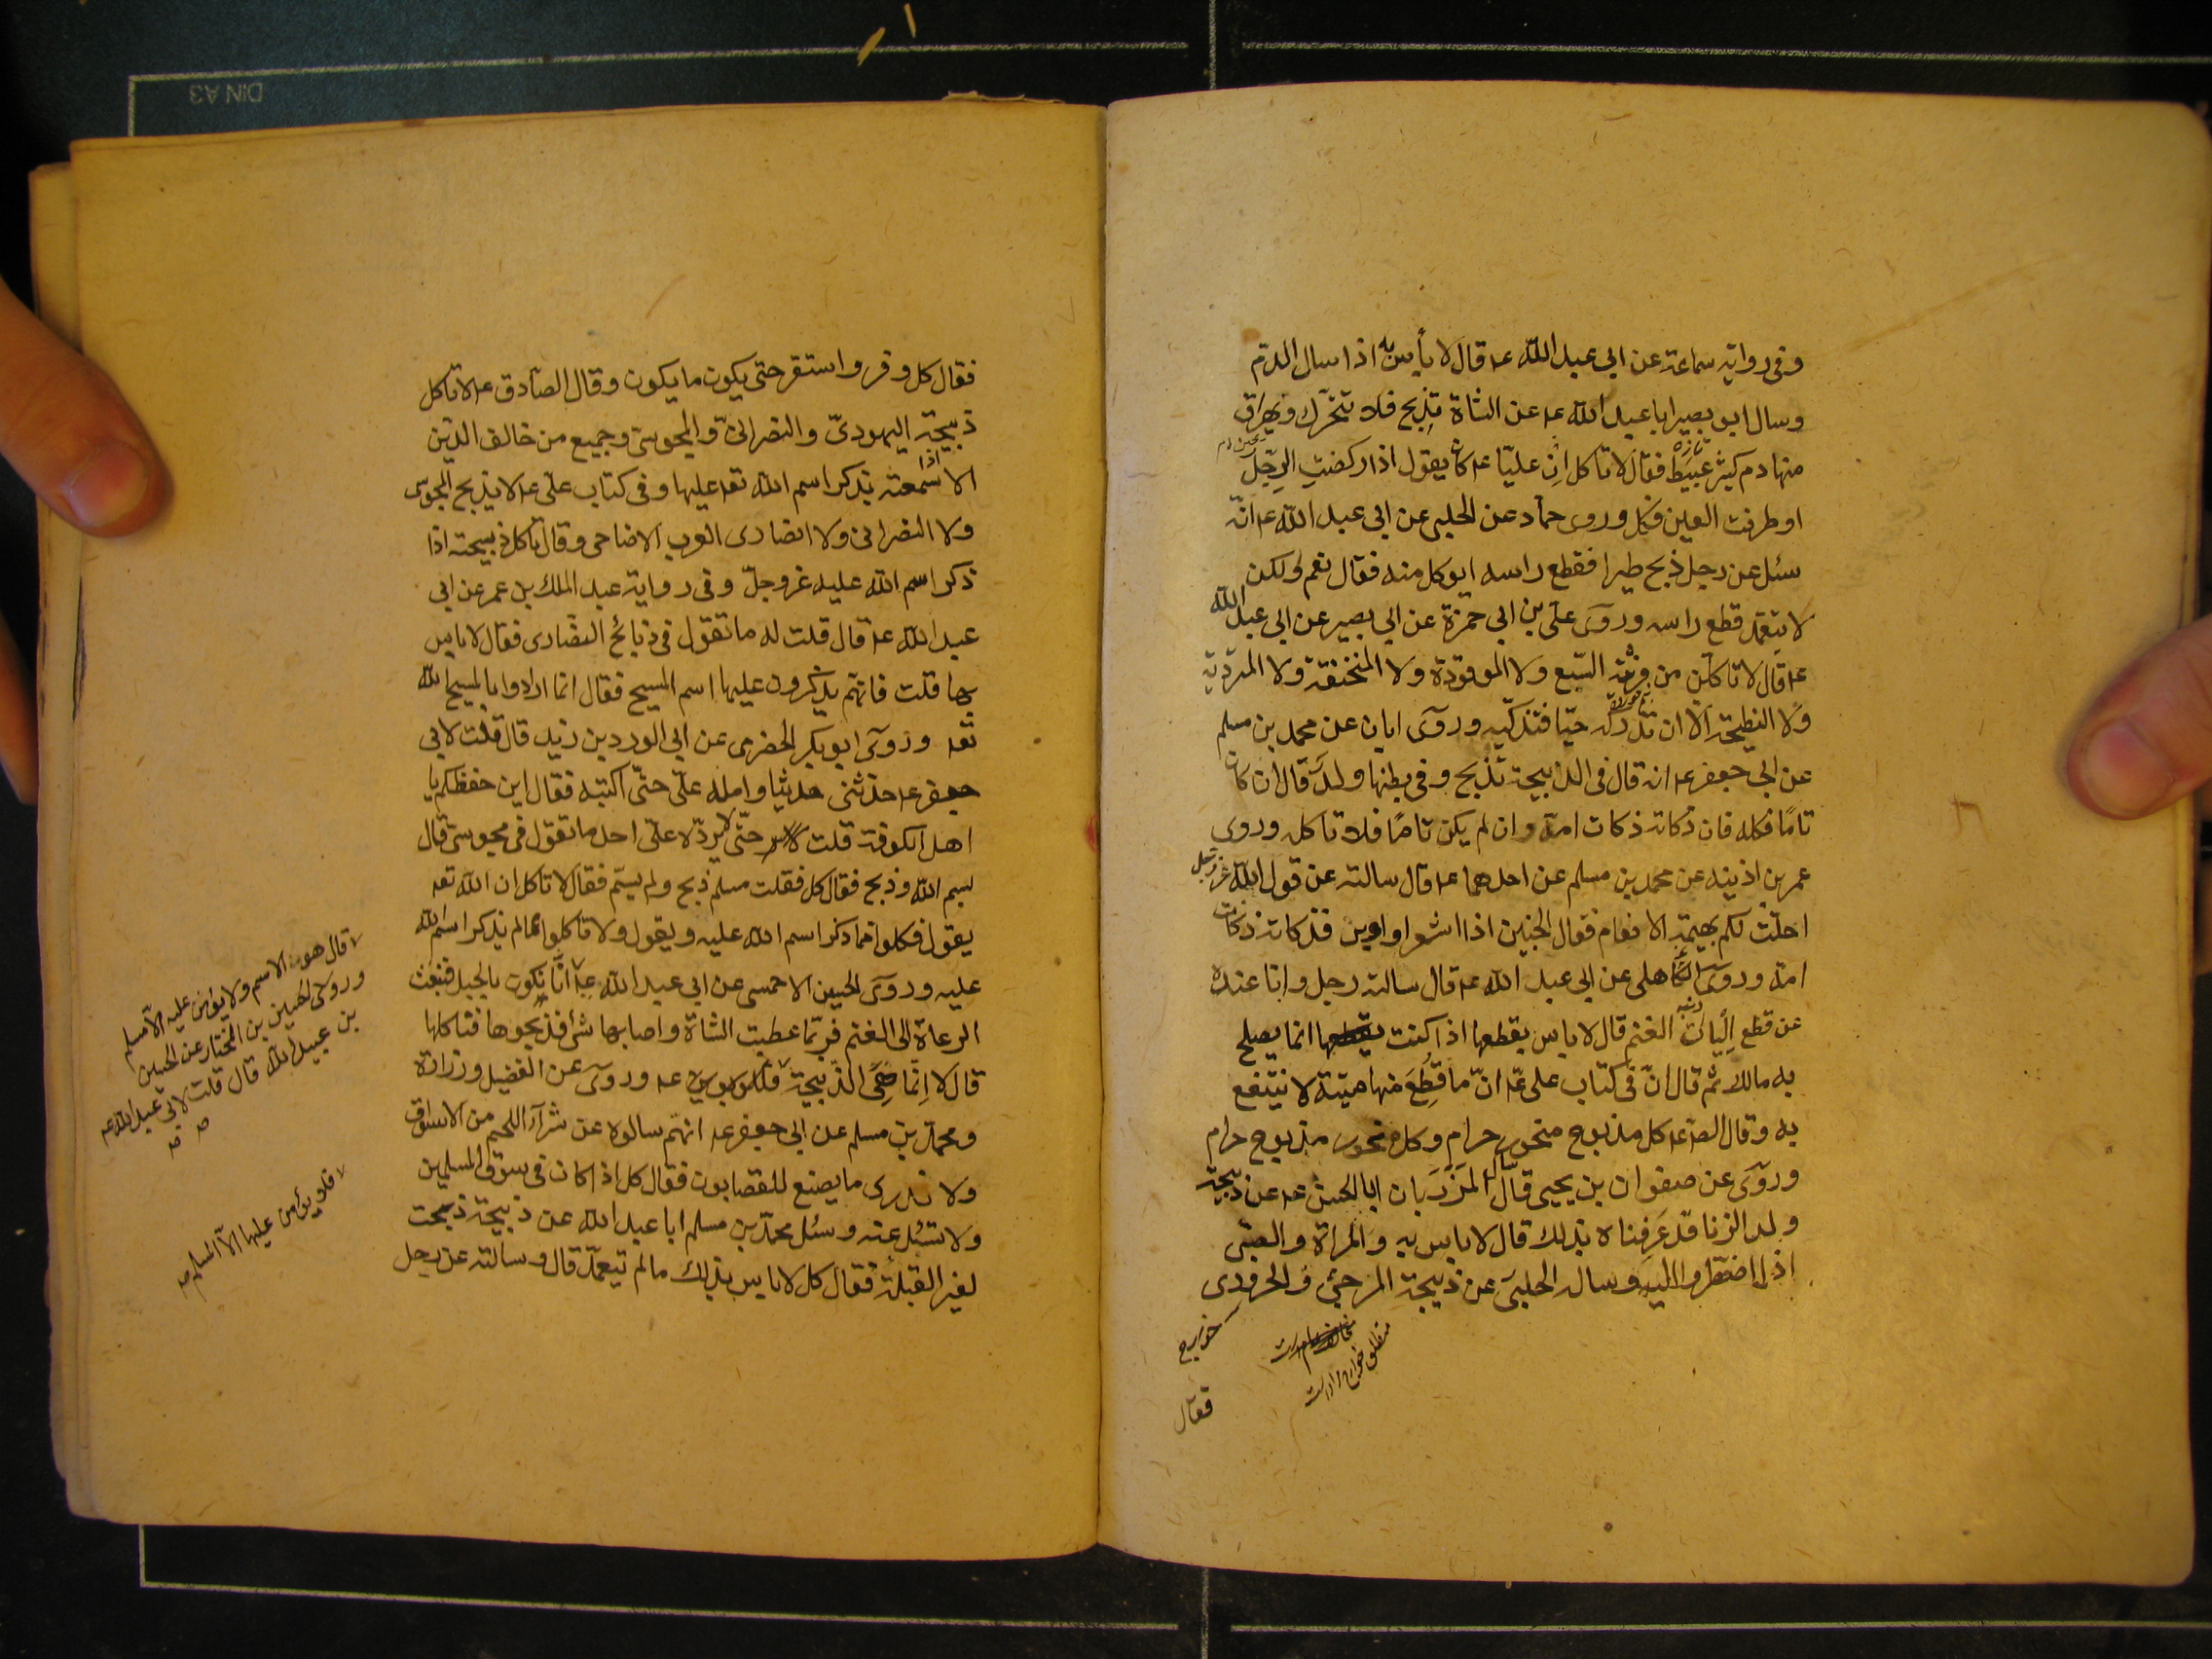 وفى رواية سماعة عن ابى عبد الله ع‍ قال لا بأس به اذا سال الدم
وسال ابو بصير ابا عبد الله ع‍ عن الشاة تذبح فلا تتحرك ويهراق
منها دم كثير عبيط فقال لا تاكل ان عليا ع‍ كان يقول اذا ركضت الرجل
تازه
او طرفت العين فكل وروى حماد عن الحلبى عن ابى عبد الله ع‍ انه
سئل عن رجل ذبح طيرا فقطع راسه ايوكل منه فقال نعم ولكن
لا يتعمد قطع راسه وروى على بن ابى حمزة عن ابى بصير عن ابى عبد الله
ع‍ قال لا تاكلن من فرية السبع ولا الموقوذة ولا المنخنقة ولا المتردية
ولا النطيحة الا ان تدركه حيا فتذكيه وروى ابان عن محمد بن مسلم
عن ابى جعفر ع‍ انه قال فى الذبيحة تذبح وفى بطنها ولد قال ان كان
تاما فكله فان ذكاته ذكات امه وان لم يكن تاما فلا تاكله وروى
عمر بن اذينه عن محمد بن مسلم عن احدهما ع‍ قال سالته عن قول الله عز وجل
احلت لكم بهيمة الانعام فقال الجنين اذا اشعر او اوبر فذكاته ذكات
امه وروى الكاهلى عن ابى عبد الله ع‍ قال سالته رجل وانا عنده
عن قطع اليات الغنم قال لا باس بقطعها اذا كنت انما يصلح
دنبه
به مالك ثم قال ان فى كتاب على ع‍ ان ما قطع منها ميتة لا ينتفع
به وقال الص ع‍ كل مذبوح منحور حرام وكل منحور مذبوح حرام
وروى عن صفوان بن يحيى قال المرزبان ابا الحسن ع‍ عن ذبيحة
ولد الزنا قد عرفناه بذلك قال لا باس به والمراة والصبى
اذا اضطروا اليه وسال الحلبى عن ذبيحة المرجئ والحرورى
فقال
فقال كل وقر واستقر حتى يكون ما يكون وقال الصادق ع‍ لا تاكل
ذبيحة اليهودى والنصرانى والمجوسى وجميع من خالف الدين
الا اذا سمعته يذكر اسم الله تعه عليها وفى كتاب على ع‍ لا يذبح المجوسى
ولا النصرانى ولا نصارى العرب الاضاحى وقال تاكل ذبيحته اذا
ذكر اسم الله عليه عز وجل وفى رواية عبد الملك بن عمر عن ابى
عبد الله ع‍ قال قلت له ما تقول فى ذبائح النصارى فقال لا باس
بها قلت فانهم يذكرون عليها اسم المسيح فقال انما ارادوا بالمسيح الله
تعه وروى ابو بكر الحضرمى عن ابى الورد بن زيد قال قلت لابى
جعفر ع‍ حدثنى حديثا وامله على حتى اكتبه فقال اين حفظكم يا
اهل الكوفة قلت حتى لا يرده على احد ما تقول فى مجوسى قال
بسم الله وذبح فقال كل فقلت مسلم ذبح ولم يسم فقال لا تاكل ان الله تعه
يقول فكلوا مما ذكر اسم الله عليه ويقول ولا تاكلوا مما لم يذكر اسم الله
عليه وروى الحسين الاحمسى عن ابى عبد الله ع‍ انا نكون بالجبل فنبعث
الرعاة الى الغنم فربما عطبت الشاة واصابها شئ فذبحوها فناكلها
قال لا انما هى الذبيحة ع‍ وروى عن الفضيل وزرارة
ومحمد بن مسلم عن ابى جعفر ع‍ انهم سالوه عن شرآء اللحم من الاسواق
ولا ندرى ما يصنع للقصابون فقال كل اذا كان فى سوق المسلمين
ولا تسئل عنه وسئل محمد بن مسلم ابا عبد الله عن ذبيحة ذبحت
لغير القبلة فقال كل لا باس بذلك ما لم يتعمد قال وسالته عن رجل
قال هو الاسم ولا يؤمن عليه الا مسلم
وروى الحسين بن المختار عن الحسين
بن عبيد الله قال قلت لابى عبد الله ع‍
فلا يؤمن عليها الا المسلم